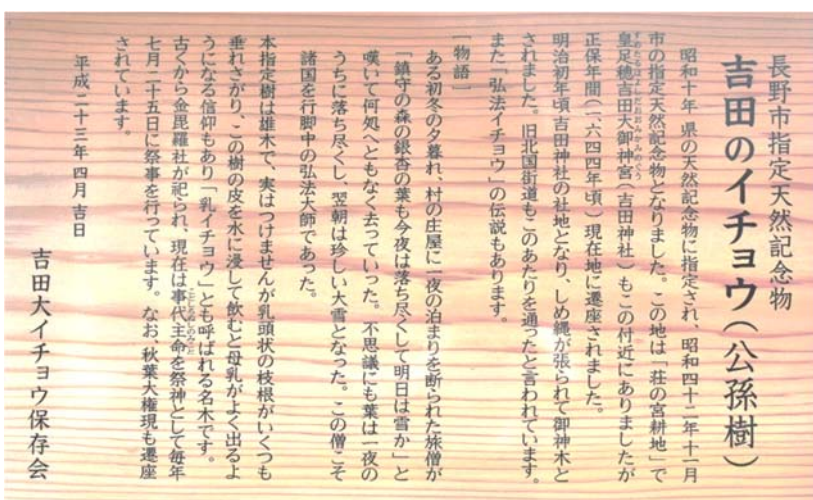 長野市指定天然記念物
吉田のイチョウ(公孫樹)
昭和十年、県の天然記念物に指定され、昭和四十二年十一月
市の指定天然記念物となりました。この地は「荘の宮耕地」で
皇足穂吉田大御神宮(吉田神社)もこの付近にありましたが
正保年間(一六四四年頃)現在地に遷座されました。
明治初年頃吉田神社の社地となり、しめ縄が張られて御神木と
されました。旧北国街道もこのあたりを通ったと言われています。
また「弘法イチョウ」の伝説もあります。
「物語」
ある初冬の夕暮れ、村の庄屋に一夜の泊まりを断られた旅僧が
「鎮守の森の銀杏の葉も今夜は落ち尽くして明日は雪か」と
嘆いて何処へともなく去っていった。不思議にも葉は一夜の
うちに落ち尽くし、翌朝は珍しい大雪となった。この僧こそ
諸国を行脚中の弘法大師であった。
本指定樹は雄木で、実はつけませんが乳頭状の枝根がいくつも
垂れさがり、この樹の皮を水に浸して飲むと母乳がよく出るよ
うになる信仰もあり「乳イチョウ」とも呼ばれる名木です。
古くから金毘羅社が祀られ、現在は事代主命を祭神として毎年
七月二十五日に祭事を行っています。なお、秋葉大権現も遷座
されています。
平成二十三年四月吉日
吉田大イチョウ保存会